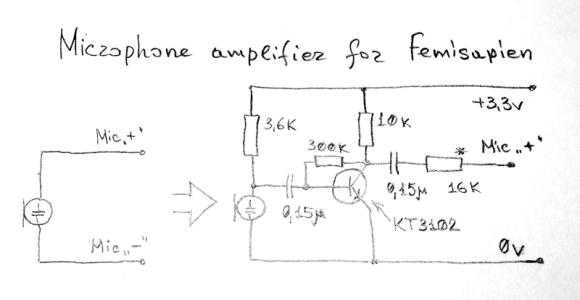 Microphone amplifier for Femisapien
+3,3v
3,6K
10K
300K
Mic„+"
*
Mic„+"
0,15µ
16K
0,15µ
KT3102
Mic„-"
0v